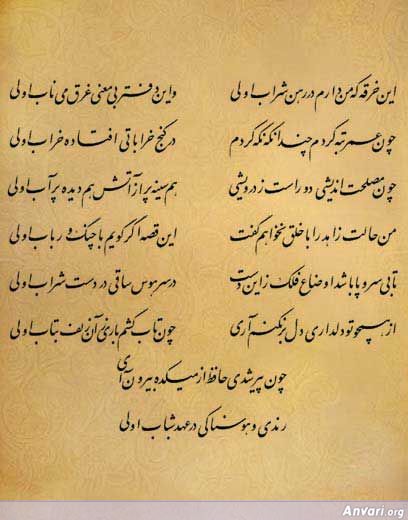 این خرقه که من دارم در رهن شراب اولی واین دفتر بی معنی غرق می ناب اولی
چون عمر تبه کردم چندانکه نگه کردم در کنج خراباتی افتاده خراب اولی
چون مصلحت اندیشی دور است ز درویشی هم سینه پر از آتش هم دیده پر آب اولی
من حالت زاهد را با خلق نخواهم گفت این قصه اگر گویم با چنگ و رباب اولی
تا بی سر و پا باشد اوضاع فلک زاین دست در سر هوس ساقی در دست شراب اولی
از همچو تو دلداری دل بر نکنم آری چون تاب کشم باری زان زلف بتاب اولی
چون پیر شدی حافظ از میکده بیرون آی
رندی و هوسناکی در عهد شباب اولی
Anvari.org